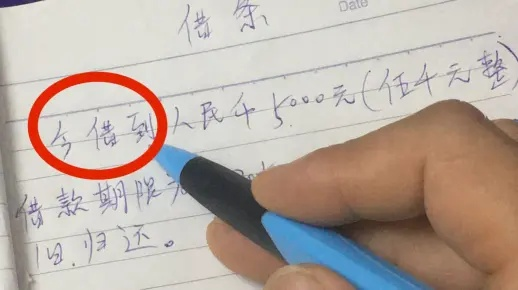 借条
Date
今借到人民币5000元(伍仟元整)
借款期限
归还。